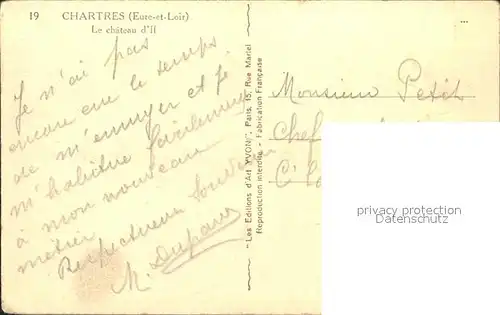 19 CHARTRES (Eure-et-Loir)
Le château d'If
Je n'ai pas
encore eu le temps
de m'ennuyer et je
m'habitue facilement
à mon nouveau
métier
Respectueux Souvenir
M. Dupont
"Les Editions d'Art YVON", Paris, 15, Rue Martel
Reproduction interdite - Fabrication Française
Monsieur Petit
Chef
privacy protection
www.delcampe.net
...